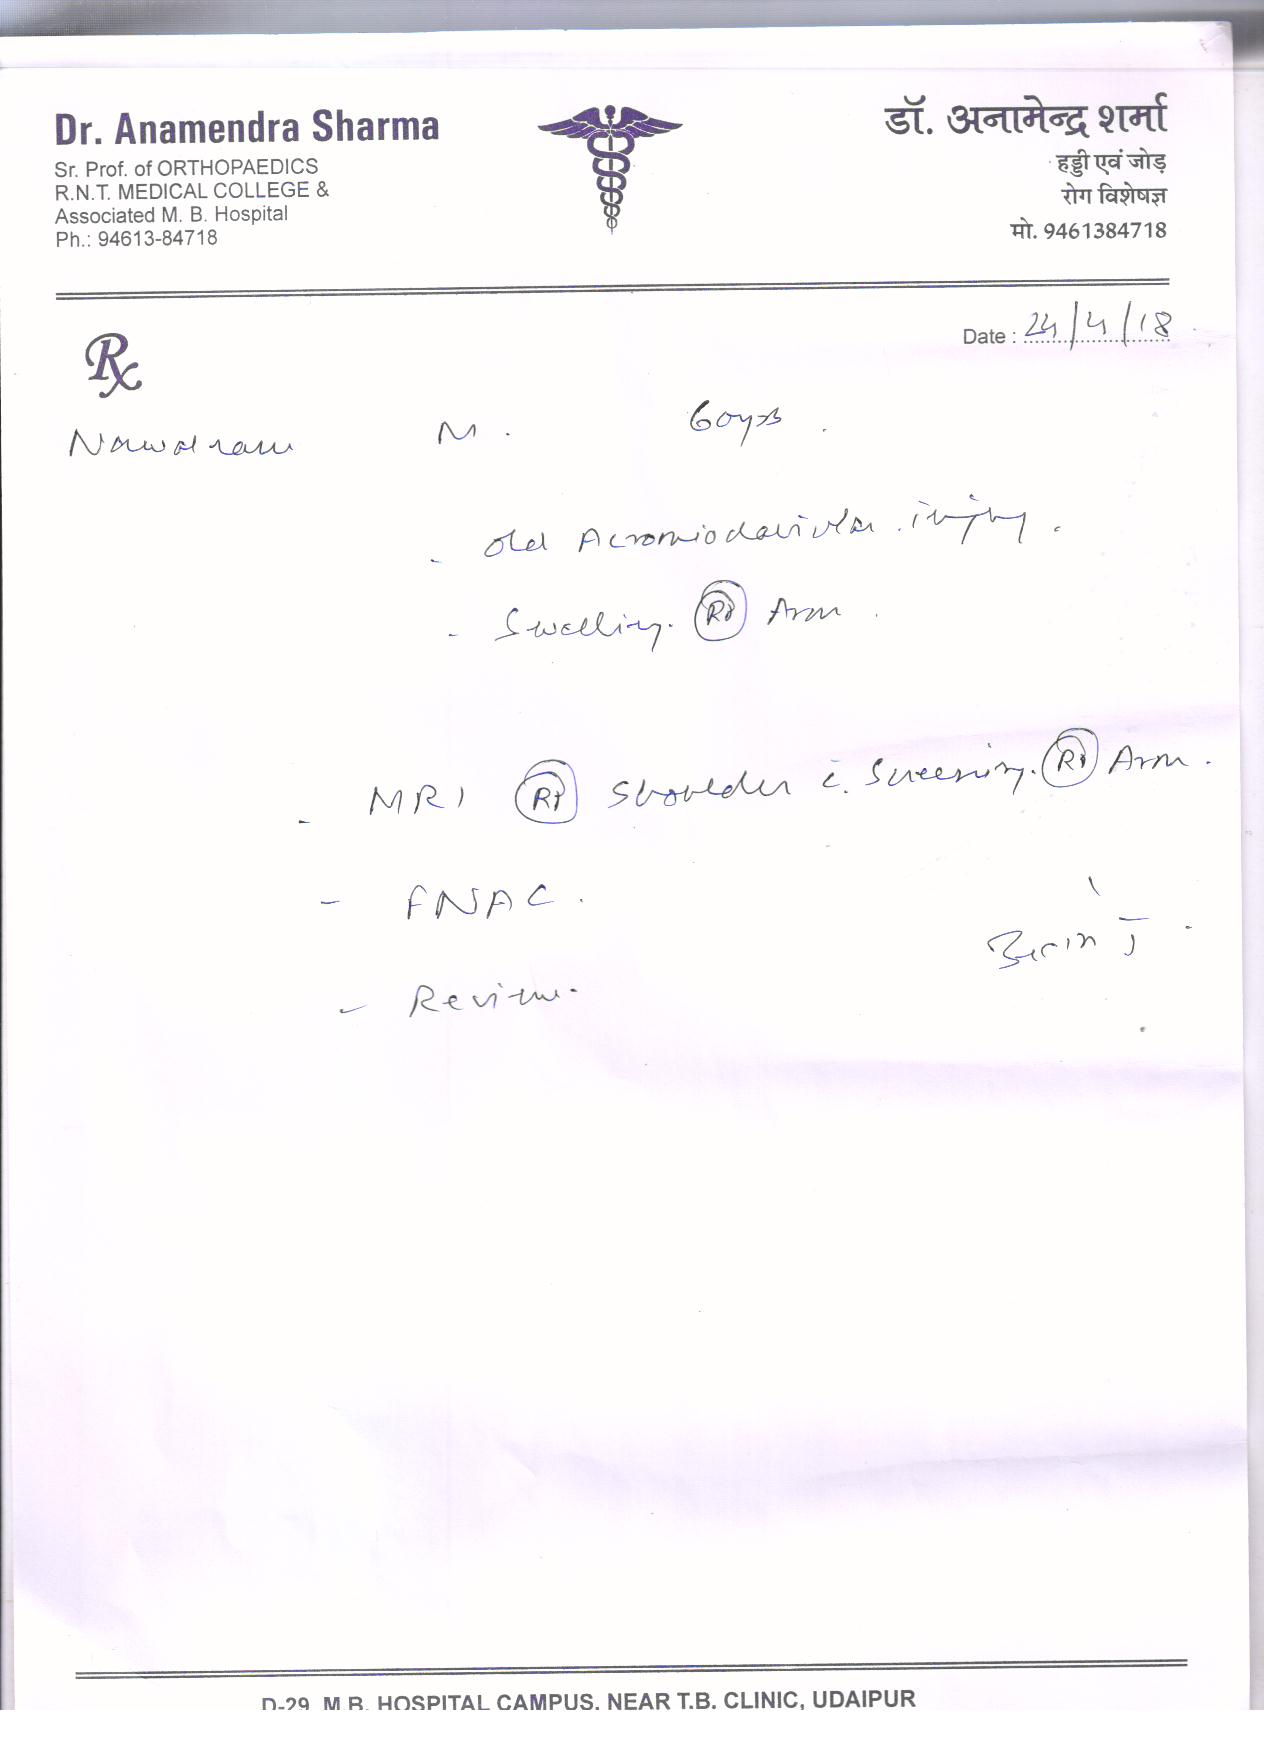 Dr. Anamendra Sharma
Sr. Prof. of ORTHOPAEDICS
R.N.T. MEDICAL COLLEGE &
Associated M. B. Hospital
Ph.: 94613-84718
डॉ. अनामेन्द्र शर्मा
हड्डी एवं जोड़
रोग विशेषज्ञ
मो. 9461384718
Date : 24/4/18
Rx
Nawalram M. 60yrs.
- Old Acromioclavicular injury.
- Swelling. Rt Arm.
- MRI Rt Shoulder c̄. Screening. Rt Arm.
- FNAC.
- Review.
D-29, M.B. HOSPITAL CAMPUS, NEAR T.B. CLINIC, UDAIPUR